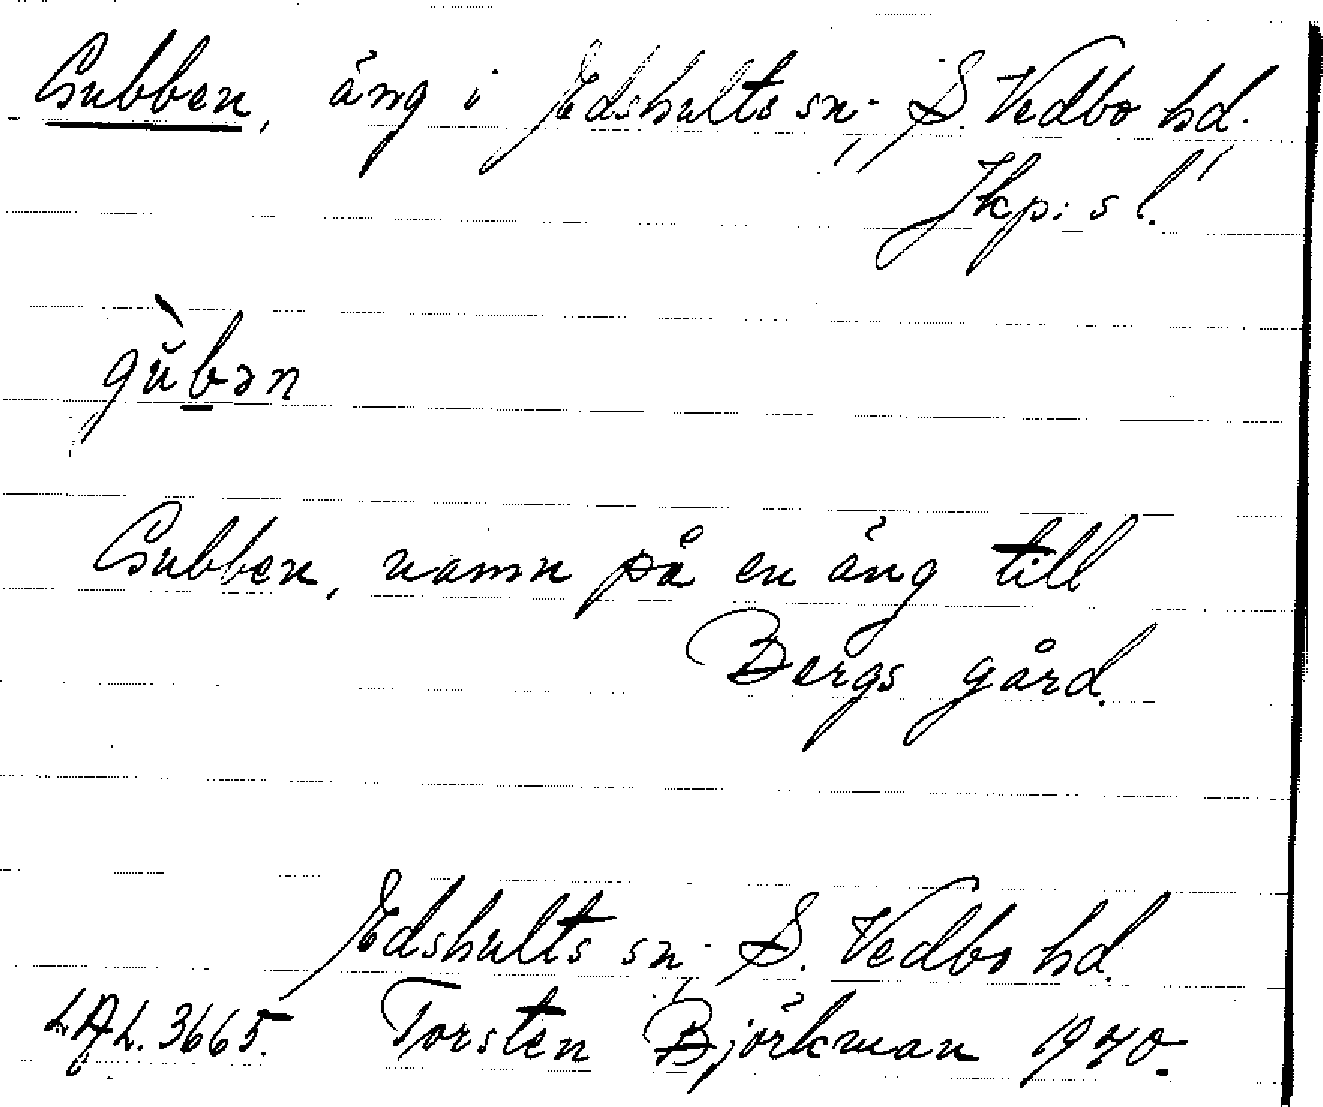 Gubben, äng i Edshults sn, S. Vedbo hd.,
Jkp:s l.
gŭ̀bən
Gubben, namn på en äng till
Bergs gård.
Edshults sn, S. Vedbo hd.
LAL. 3665. Torsten Björkman 1940.